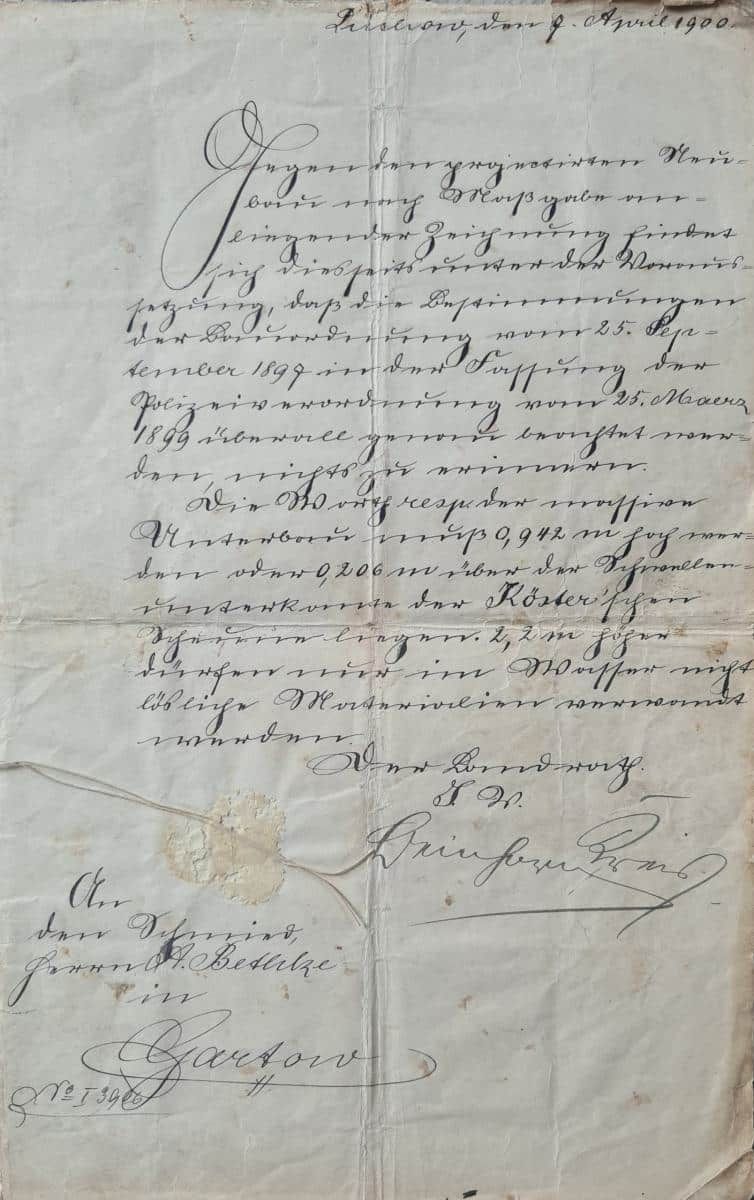 Lüchow, den 9. April 1900.
Gegen den projectirten Neu-
bau nach Maßgabe an-
liegender Zeichnung findet
sich diesseits unter der Voraus-
setzung, daß die Bestimmungen
der Bauordnung vom 25. Sep-
tember 1897 in der Fassung der
Polizeiverordnung vom 25. Maerz
1899 überall genau beachtet wer-
den, nichts zu erinnern.
Die Worth resp. der massive
Unterbau muß 0,942 m hoch wer-
den oder 0,206 m über der Schwellen-
unterkante der Köster'schen
Scheune liegen. 2,2 m höher
dürfen nur im Wasser nicht
lösliche Materialien verwandt
werden.
Der Landrath.
I. V.
An
den Schmied,
Herrn A. Bethke
in
Gartow
No I